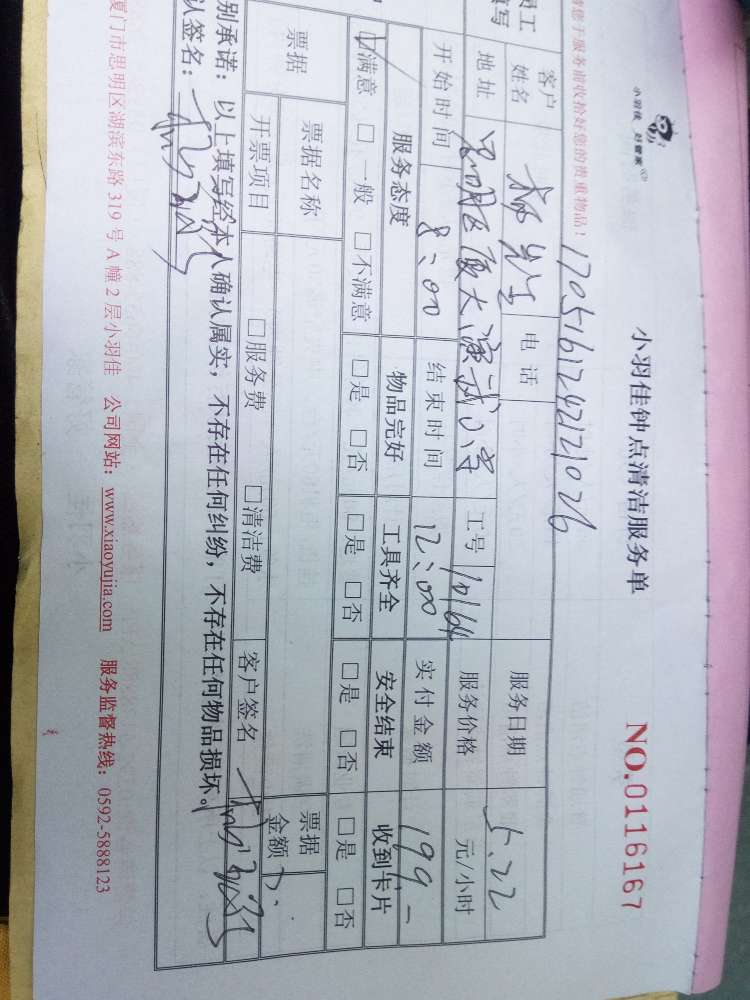 小羽佳 好管家
小羽佳钟点清洁服务单
NO.0116167
请您于服务前收拾好您的贵重物品!
1705161242121026
客户姓名 先生 电话 服务日期 5.22
地址 思明区厦大演武小学 工号 10164 服务价格 元/小时
开始时间 8:00 结束时间 12:00 实付金额 199-
服务态度 物品完好 工具齐全 安全结束 收到卡片
☑满意 □一般 □不满意 □是 □否 □是 □否 □是 □否 □是 □否
票据 票据名称 票据金额
开票项目 □服务费 □清洁费 客户签名
别承诺：以上填写经本人确认属实，不存在任何纠纷，不存在任何物品损坏。
认签名：
厦门市思明区湖滨东路 319 号 A 幢 2 层小羽佳 公司网站：www.xiaoyujia.com 服务监督热线：0592-5888123